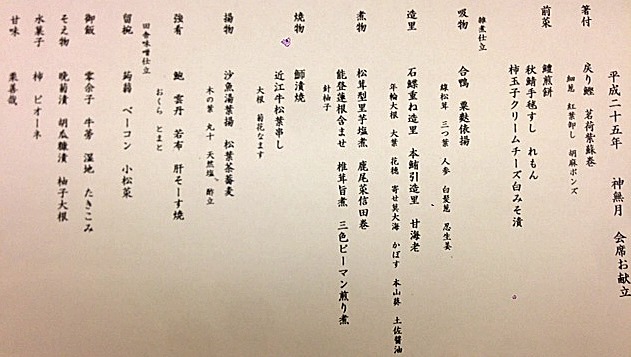 平成二十五年 神無月 会席お献立
箸付 戻り鰹 茗荷紫蘇巻
細葱 紅葉卸し 胡麻ポンズ
前菜 鱧煎餅
秋鯖手毬すし れもん
柿玉子クリームチーズ白みそ漬
雑煮仕立
吸物 合鴨 粟麩俵揚
録松茸 三つ葉 人参 白髪葱 忍生姜
造里 石鰈重ね造里 本鮪引造里 甘海老
年輪大根 大葉 花穂 寄せ莫大海 かぼす 本山葵 土佐醤油
煮物 松茸型里芋塩煮 鹿尾菜信田巻
能登蓮根含ませ 椎茸旨煮 三色ピーマン煎り煮
針柚子
焼物 鰤漬焼
近江牛松葉串し
大根 菊花なます
揚物 沙魚湯葉揚 松葉茶蕎麦
木の葉 丸十 天然塩 酢立
強肴 鮑 雲丹 若布 肝そーす焼
おくら とまと
田舎味噌仕立
留椀 蒟蒻 ベーコン 小松菜
御飯 零余子 牛蒡 湿地 たきこみ
そえ物 晩菊漬 胡瓜糠漬 柚子大根
水菓子 柿 ピオーネ
甘味 栗善哉